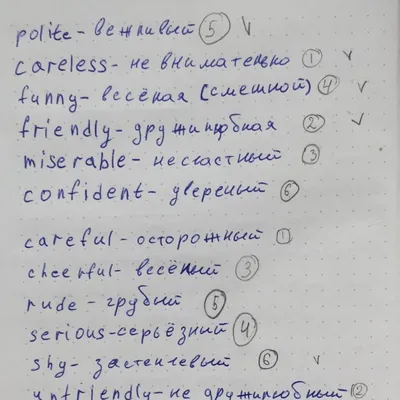 polite - вежливый 5 ✓
careless - не внимательно 1 ✓
funny - весёлая (смешной) 4 ✓
friendly - дружилюбная 2 ✓
miserable - несчастный 3
confident - увереный 6
careful - осторожный 1
cheerful - весёлый 3
rude - грубый 5
serious - серьёзний 4
shy - застенчевый 6 ✓
unfriendly - не дружилюбный 2